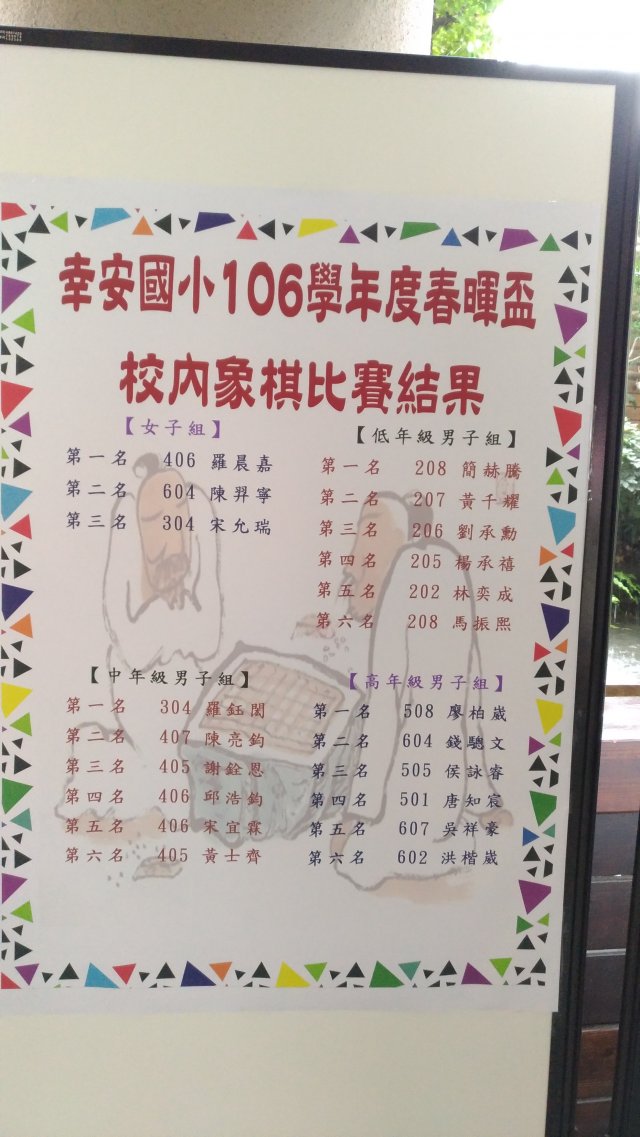 幸安國小106學年度春暉盃
校內象棋比賽結果
【女子組】
第一名 406 羅晨嘉
第二名 604 陳羿寧
第三名 304 宋允瑞
【低年級男子組】
第一名 208 簡赫騰
第二名 207 黃千耀
第三名 206 劉承勳
第四名 205 楊承禧
第五名 202 林奕成
第六名 208 馬振熙
【中年級男子組】
第一名 304 羅鈺閎
第二名 407 陳亮鈞
第三名 405 謝銓恩
第四名 406 邱浩鈞
第五名 406 宋宜霖
第六名 405 黃士齊
【高年級男子組】
第一名 508 廖柏崴
第二名 604 錢驄文
第三名 505 侯詠睿
第四名 501 唐知宸
第五名 607 吳祥豪
第六名 602 洪楷崴